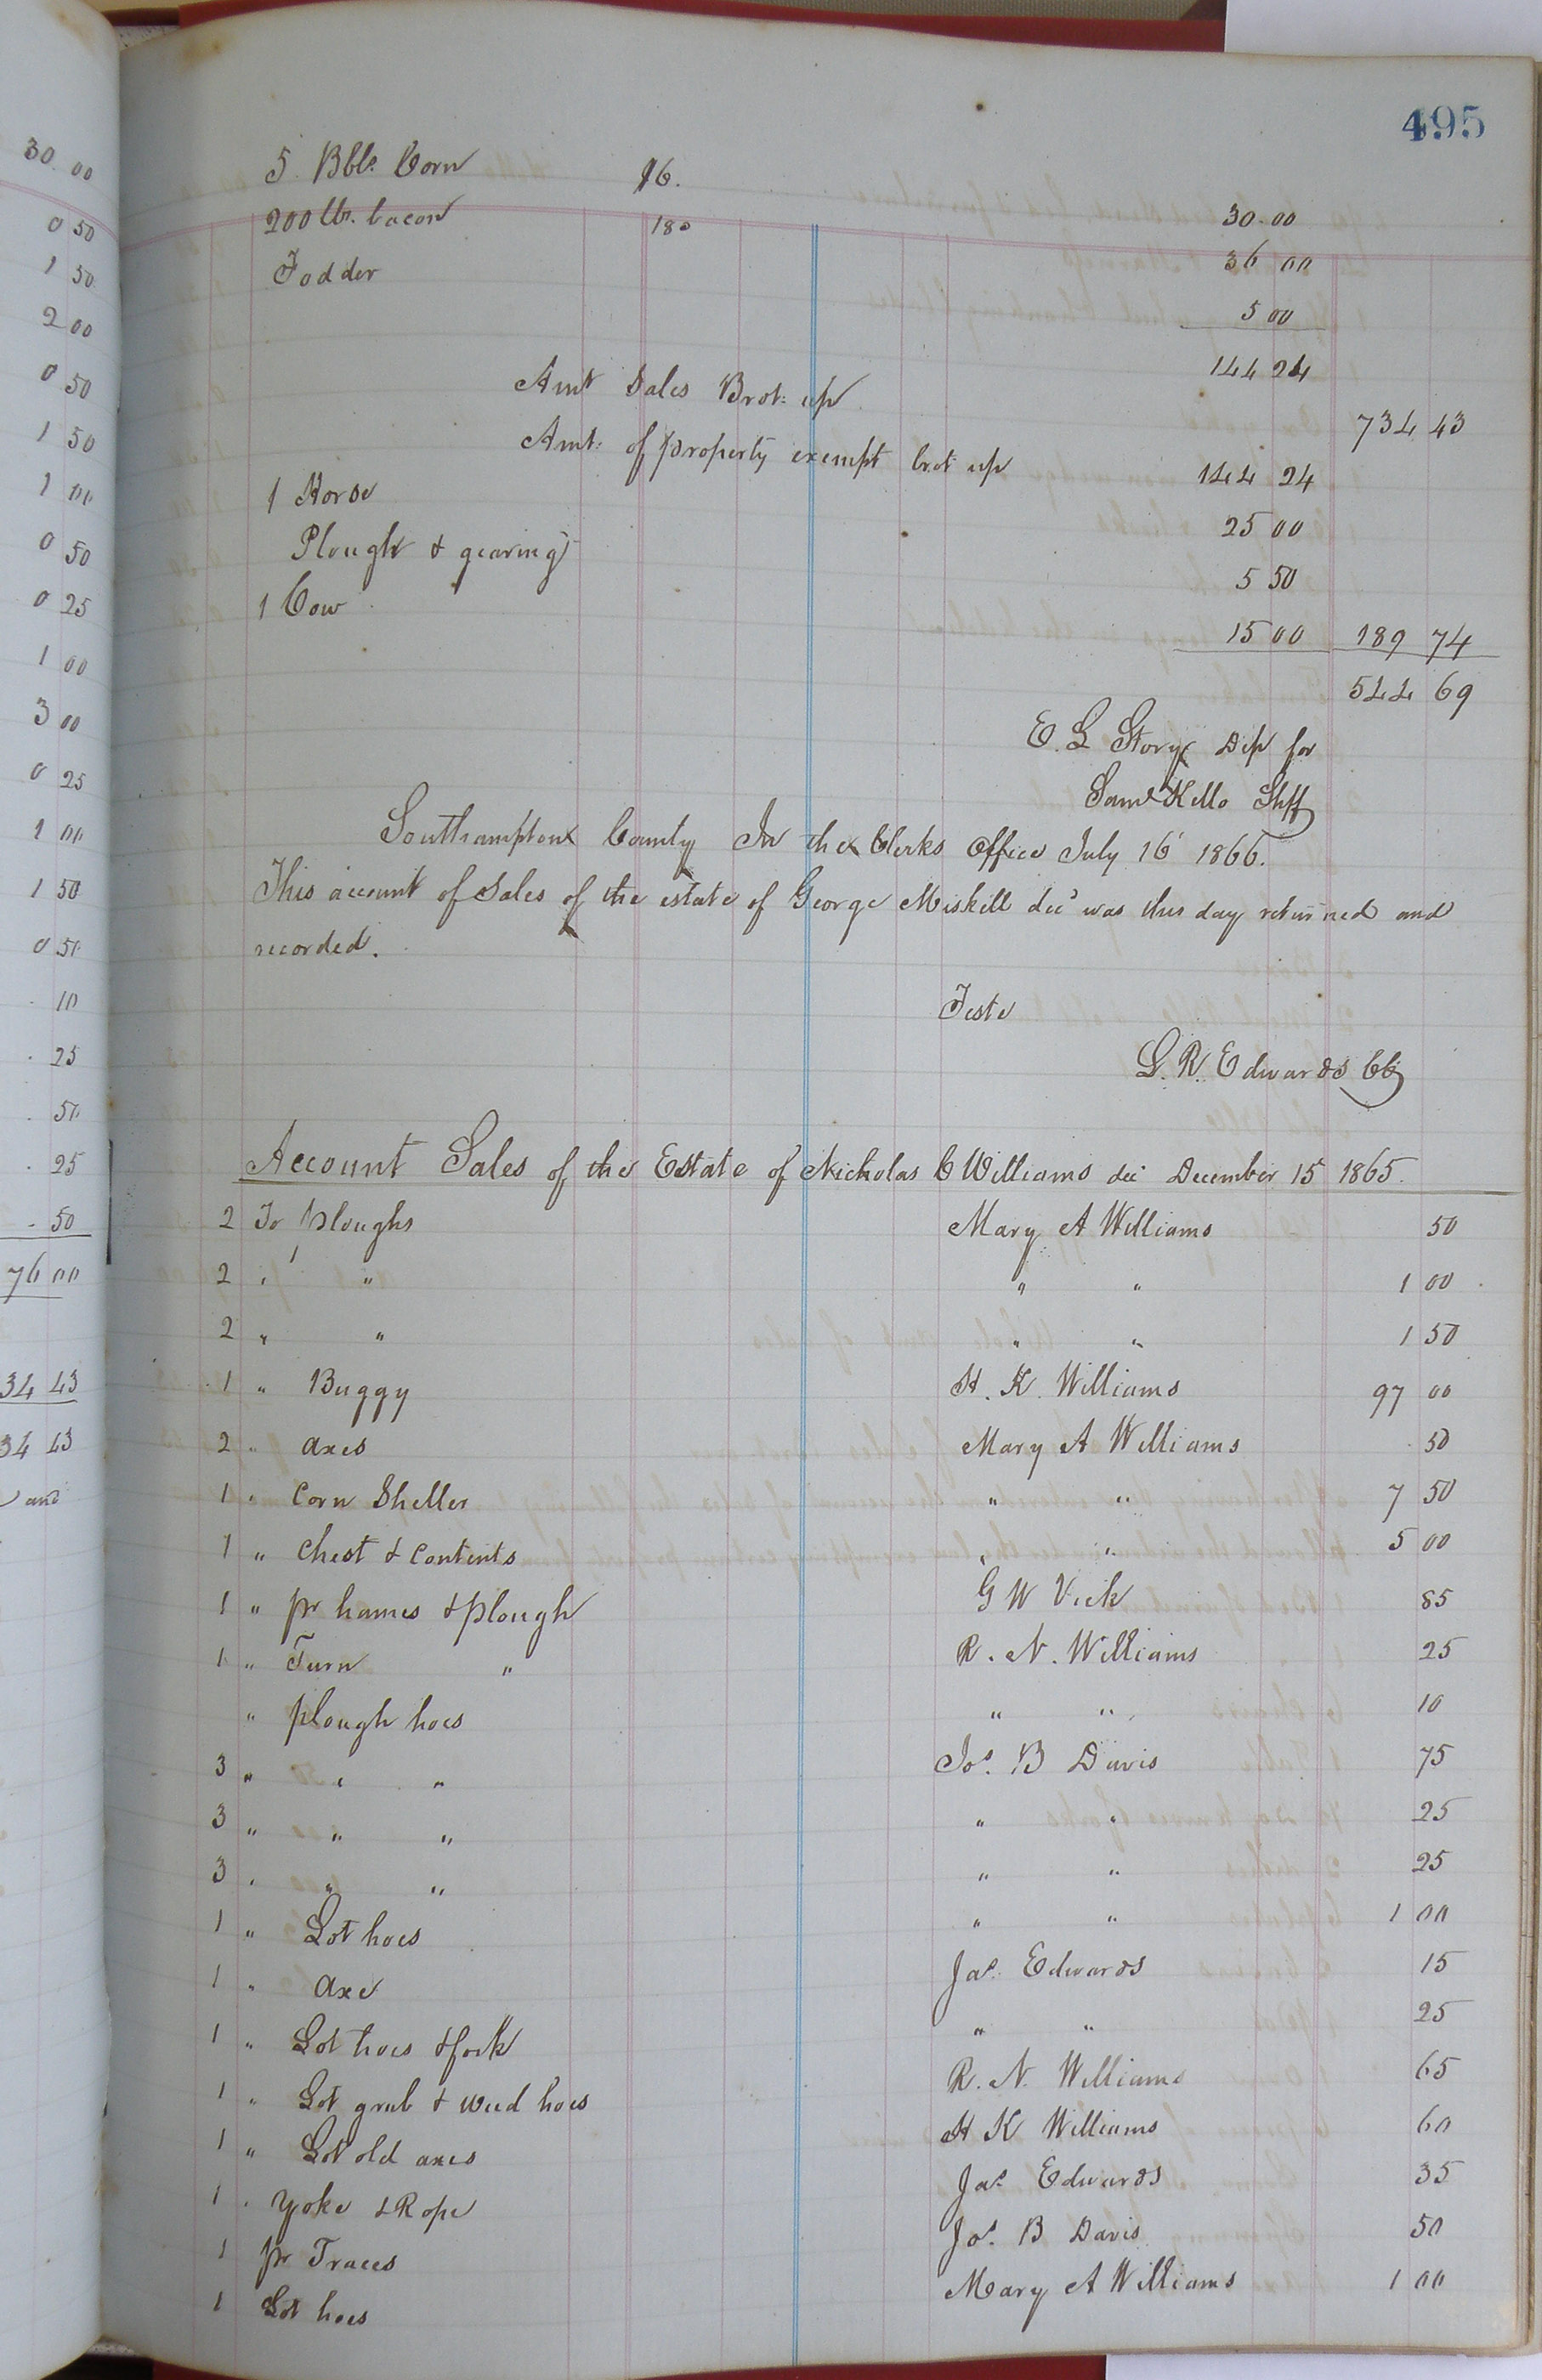 30 00
0 50
1 50
2 00
0 50
1 50
1 00
0 50
0 25
1 00
3 00
0 25
1 00
1 50
0 50
. 10
. 25
. 50
. 25
. 50
76 00
34 43
34 43
and
495
5 Bbls. Corn $6. 30.00
200 lbs. bacon 18c 36 00
Fodder 5 00
144 24
Amt Sales Brot: up 734 43
Amt: of property exempt brot up 144 24
1 Horse 25 00
Plough & gearing 5 50
1 Cow 15 00 189 74
544 69
E. L Story Dep for
Saml Kello Shff
Southampton County In the Clerks Office July 16 1866.
This account of Sales of the estate of George Miskill decd was this day returned and
recorded.
Teste
L. R. Edwards CC
Account Sales of the Estate of Nicholas C Williams dec December 15 1865.
2 To ploughs Mary A Williams 50
2 " " " " 1 00
2 " " " " 1 50
1 " Buggy H. K. Williams 97 00
2 " axes Mary A Williams 50
1 " Corn Sheller " " 7 50
1 " Chest & Contents " " 5 00
1 " pr hames & plough G W Vick 85
1 " Turn " R. N. Williams 25
" plough hoes " " 10
3 " " " Jos. B Davis 75
3 " " " " " 25
3 " " " " " 25
1 " Lot hoes " " 1 00
1 " Axe Jas. Edwards 15
1 " Lot hoes & fork " " 25
1 " Lot grub & weed hoes R. N. Williams 65
1 " Lot old axes H K Williams 60
1 " Yoke & Rope Jas Edwards 35
1 pr Traces Jos. B Davis 50
1 Lot hoes Mary A Williams 1 00